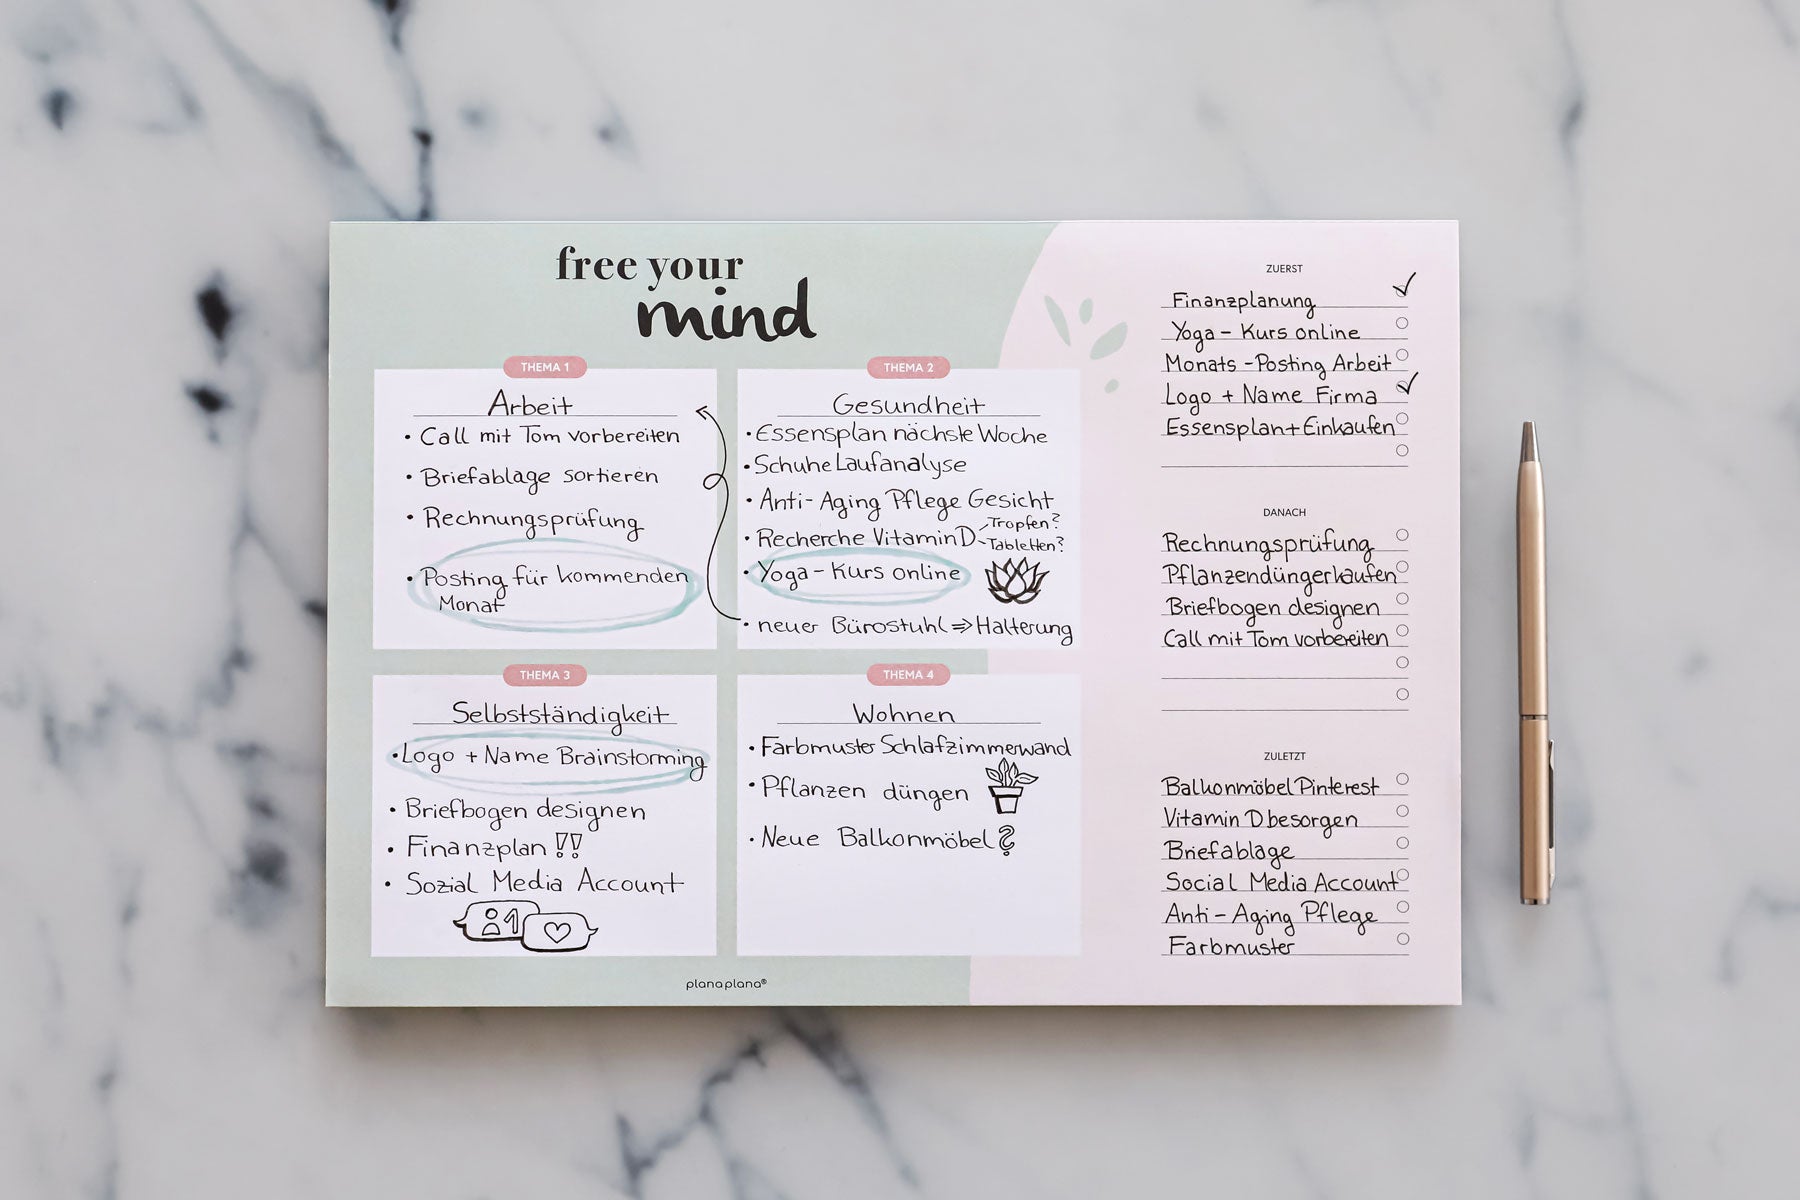 free your
mind
THEMA 1
Arbeit
• Call mit Tom vorbereiten
• Briefablage sortieren
• Rechnungsprüfung
• Posting für kommenden
Monat
THEMA 2
Gesundheit
• Essensplan nächste Woche
• Schuhe Laufanalyse
• Anti-Aging Pflege Gesicht
• Recherche Vitamin D - Tropfen?
- Tabletten?
• Yoga - Kurs online
• neuer Bürostuhl ⇒ Halterung
THEMA 3
Selbstständigkeit
• Logo + Name Brainstorming
• Briefbogen designen
• Finanzplan !!
• Sozial Media Account
1
THEMA 4
Wohnen
• Farbmuster Schlafzimmerwand
• Pflanzen düngen
• Neue Balkonmöbel?
planaplana®
ZUERST
Finanzplanung ✓
Yoga - Kurs online
Monats - Posting Arbeit
Logo + Name Firma ✓
Essensplan + Einkaufen
DANACH
Rechnungsprüfung
Pflanzendünger kaufen
Briefbogen designen
Call mit Tom vorbereiten
ZULETZT
Balkonmöbel Pinterest
Vitamin D besorgen
Briefablage
Social Media Account
Anti - Aging Pflege
Farbmuster